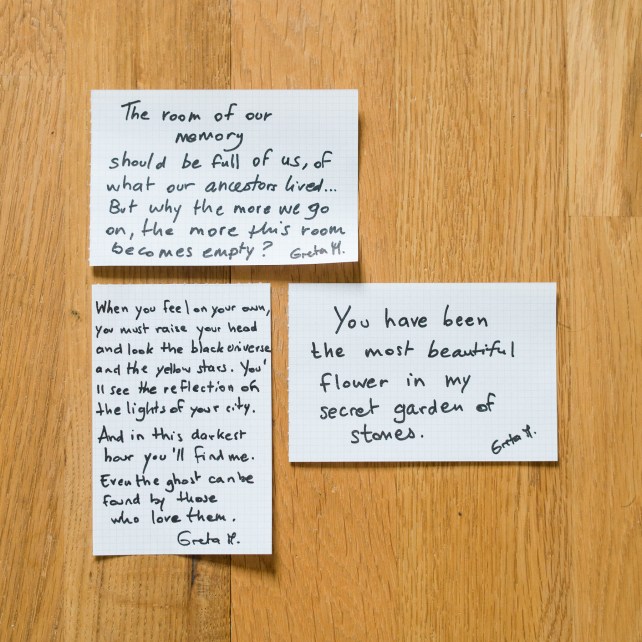 The room of our
memory
should be full of us, of
what our ancestors lived...
But why the more we go
on, the more this room
becomes empty?
Greta M.
When you feel on your own,
you must raise your head
and look the black universe
and the yellow stars. You'
ll see the reflection of
the lights of your city.
And in this darkest
hour you'll find me.
Even the ghost can be
found by those
who love them.
Greta M.
You have been
the most beautiful
flower in my
secret garden of
stones.
Greta M.